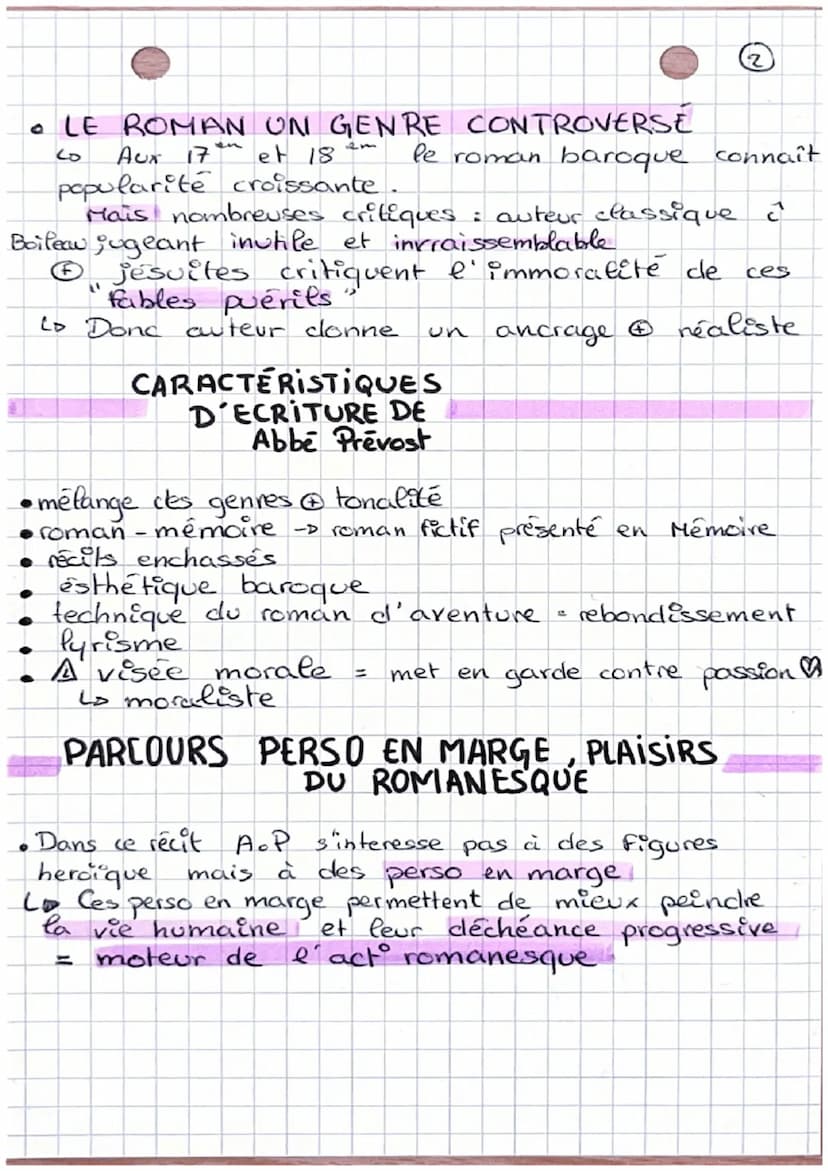 2
• LE ROMAN UN GENRE CONTROVERSÉ
↳ Aux 17èm et 18èm le roman baroque connaît
popularité croissante.
Mais nombreuses critiques : auteur classique
Boileau jugeant inutile et invraissemblable
⊕ jésuites critiquent l'immoralité de ces
"fables puérils"
↳ Donc auteur donne un ancrage ⊕ réaliste
CARACTÉRISTIQUES
D'ECRITURE DE
Abbé Prévost
• mélange des genres ⊕ tonalité
• roman - mémoire -> roman fictif présenté en Mémoire
• récits enchassés
• ésthétique baroque
• technique du roman d'aventure = rebondissement
• lyrisme
• ⚠ visée morale = met en garde contre passion ♡
↳ moraliste
PARCOURS PERSO EN MARGE, PLAISIRS
DU ROMANESQUE
• Dans ce récit A.P s'interesse pas à des figures
heroïque mais à des perso en marge
↳ Ces perso en marge permettent de mieux peindre
la vie humaine et leur déchéance progressive
= moteur de l'act° romanesque